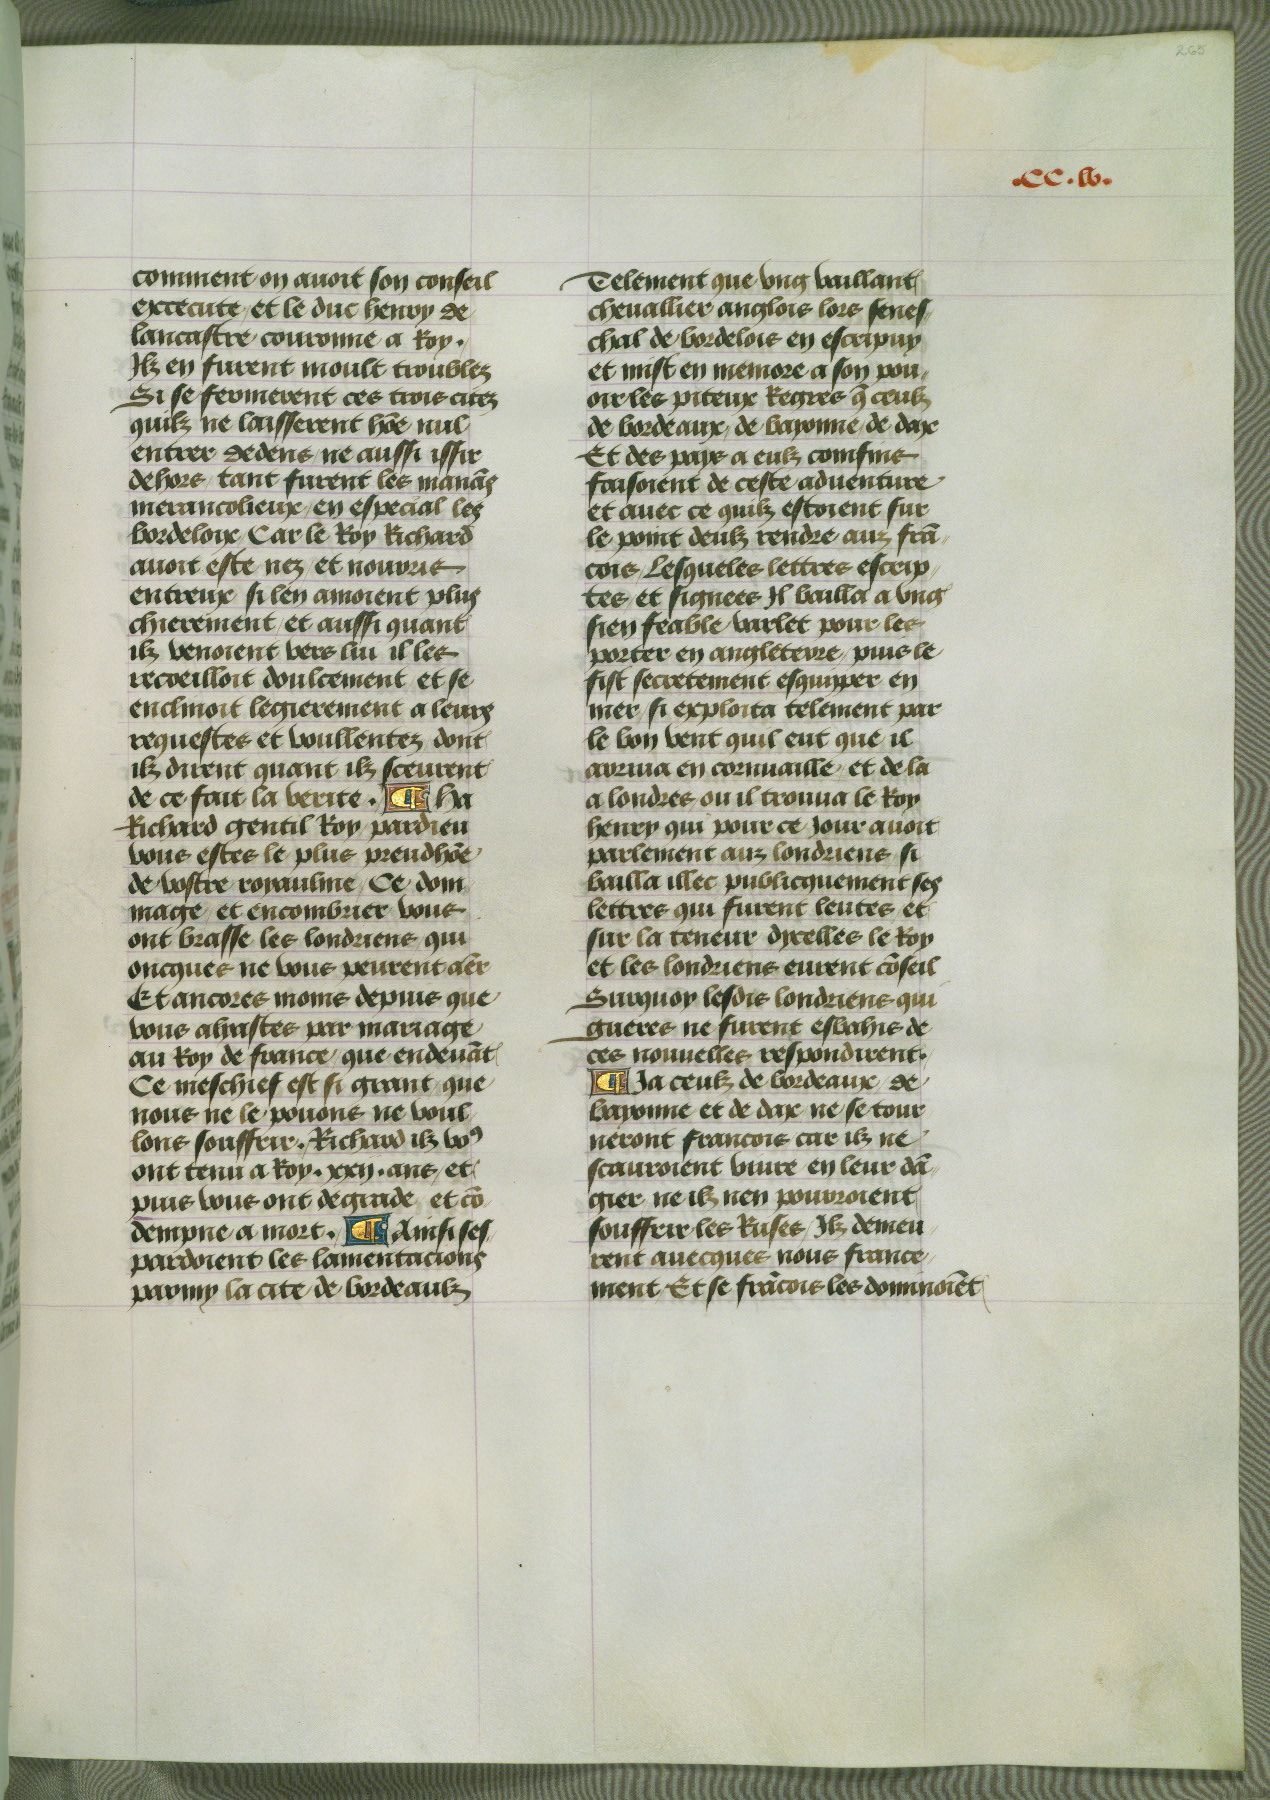 265
.CC.lv.
comment on auoit son conseil
excecute / et le duc henry de
lancastre couronne a Roy .
Ilz en furent moult troublez
Si se fermerent ces trois citez
quilz ne laisserent hõe nul
entrer dedens / ne aussi issir
dehors / tant furent les manãs
merancolieux / en especial les
bordelois Car le Roy Richard
auoit este nez / et nourris
entreux / si len amoient plus
chierement / et aussi quant
ilz venoient vers lui il les
recoeilloit doulcement et se
enclinoit legierement a leurs
requestes et voullentez dont
ilz dirent quant ilz sceurent
de ce fait la verite . ¶ Ha
Richard gentil Roy / pardieu
vous estes le plus preudhõe
de vostre royaulme / Ce dom
mage / et encombrier vous
ont brasse les londriens qui
oncques ne vous peurent aẽr
Et ancores moins depuis que
vous aliastes par mariage
au Roy de france / que endeuãt
Ce meschief est si grant que
nous ne le pouons ne voul
lons souffrir . Richard ilz voꝰ
ont tenu a Roy . xxij . ans / et
puis vous ont degrade / et cõ
dempne a mort . ¶ Ainsi ses
pardoient les lamentacions
parmy la cite de bordeaulz
Telement que vng vaillant
cheuallier anglois lors senes
chal de bordelois en escripuy
et mist en memore a son pou /
oir les piteux Regres q̃ ceulz
de bordeaux / de bayonne / de dax
Et des pays a eulz confins
faisoient de ceste aduenture
et auec ce quilz estoient sur
le point deulz rendre auz frã /
cois / Lesqueles lettres escrip /
tes / et signees Il bailla a vng
sien feable varlet pour les
porter en angleterre / puis le
fist secretement esquipper en
mer / si exploita telement par
le bon vent quil eut que il
arriua en cornuaille / et de la
a londres ou il trouua le Roy
henry qui pour ce Jour auoit
parlement auz londriens si
bailla illec publicquement ses
lettres qui furent leutes et
sur la teneur dycelles le Roy
et les londriens eurent cõseil
Surquoy lesdis londriens qui
gueres ne furent esbahis de
ces nouuelles respondirent .
¶ Ja ceulz de bordeaux / de
bayonne et de dax ne se tour
neront francois car ilz ne
scauroient viure en leur dã /
gier ne ilz nen pourroient
souffrir les Ruses / Ilz demeu /
rent auecques nous france /
ment Et se frãcois les dominoiẽt